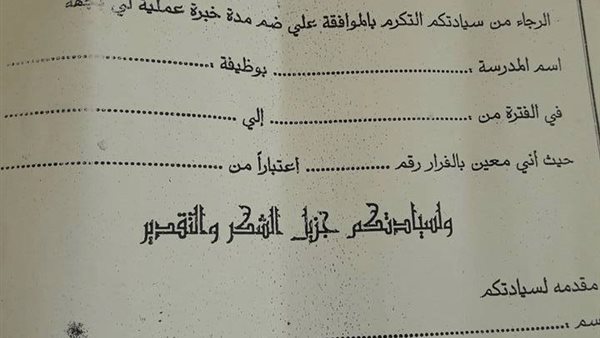 الرجاء من سيادتكم التكرم بالموافقة علي ضم مدة خبرة عملية لي
اسم المدرسة :........................ بوظيفة ........................
في الفترة من :........................ إلي ........................
حيث أني معين بالقرار رقم ............ إعتباراً من ........................
ولسيادتكم جزيل الشكر والتقدير
مقدمه لسيادتكم
سم :........................